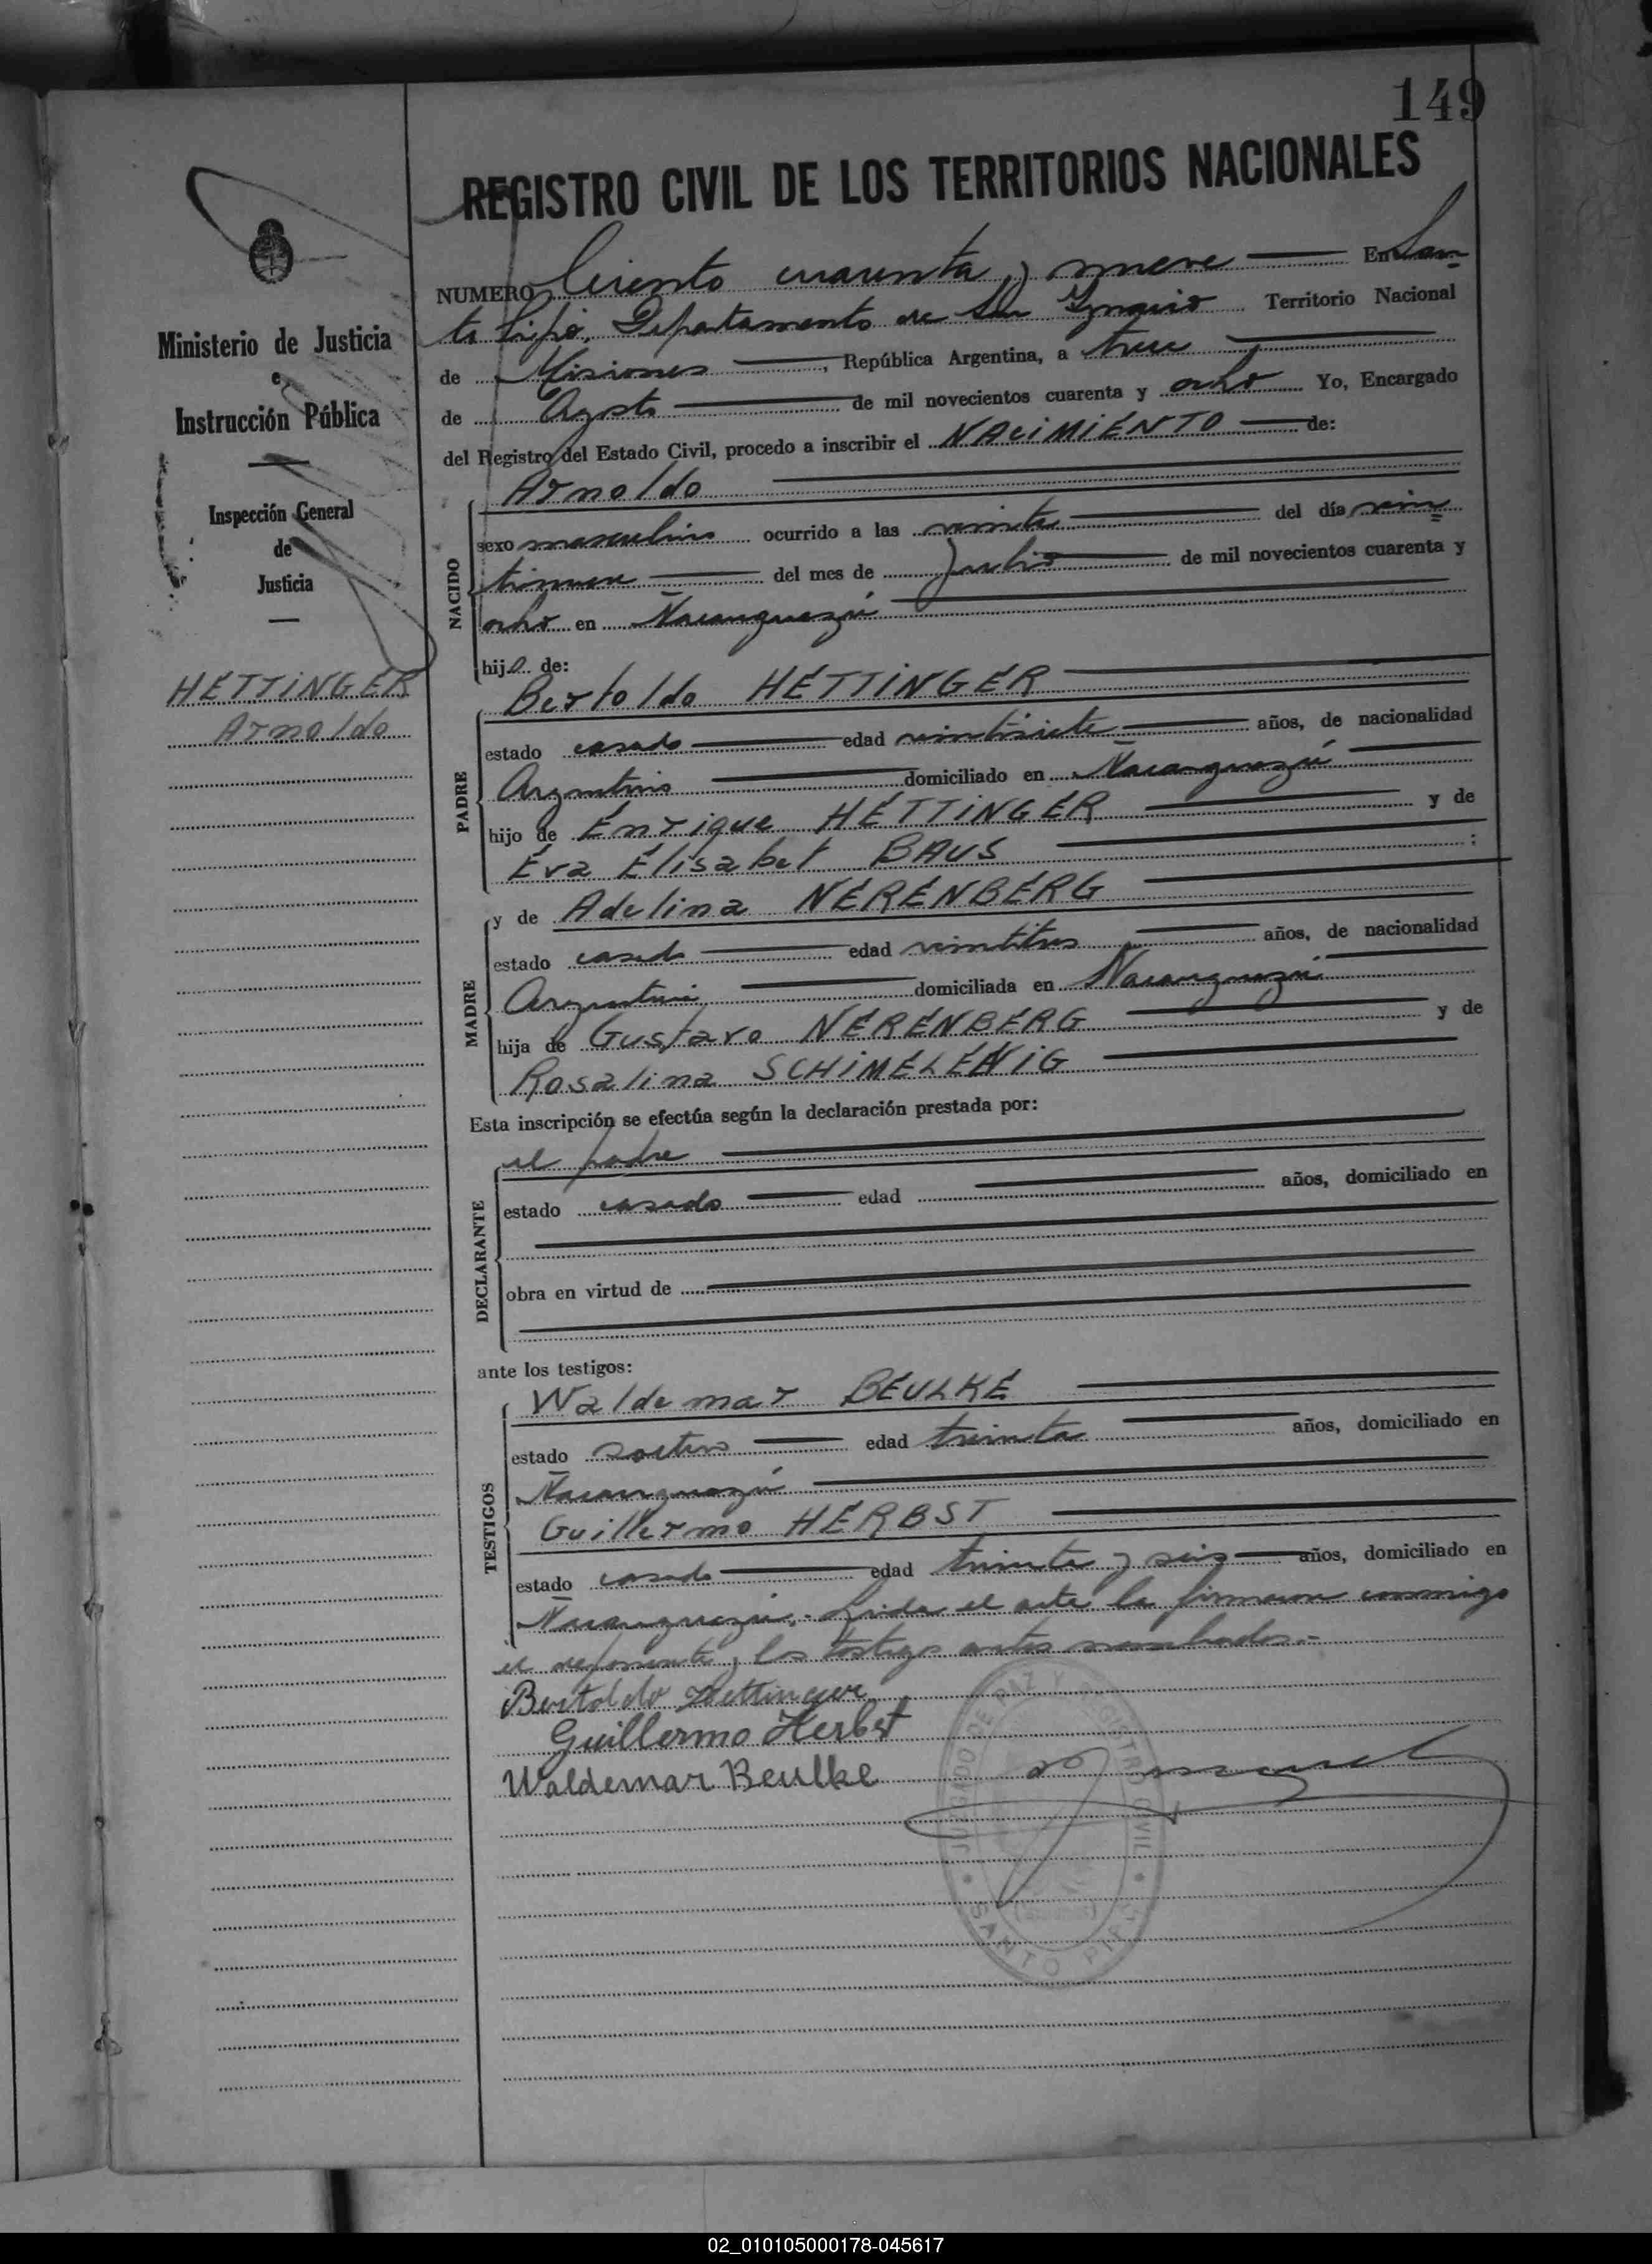 149
REGISTRO CIVIL DE LOS TERRITORIOS NACIONALES
NUMERO Ciento cuarenta y nueve En San-
to Pipó, Departamento de San Ignacio Territorio Nacional
de Misiones, República Argentina, a trece
de Agosto de mil novecientos cuarenta y ocho Yo, Encargado
del Registro del Estado Civil, procedo a inscribir el NACIMIENTO de:
Ministerio de Justicia
e
Instrucción Pública
Inspección General
de
Justicia
HETTINGER
Arnoldo
NACIDO
Arnoldo
sexo masculino ocurrido a las veinte del día vein
tinueve del mes de Julio de mil novecientos cuarenta y
ocho en Ñacanguazú
hijo de:
PADRE
Bertoldo HETTINGER
estado casado edad veintisiete años, de nacionalidad
Argentino domiciliado en Ñacanguazú
hijo de Enrique HETTINGER y de
Eva Elisabet BAUS :
MADRE
y de Adelina NERENBERG
estado casada edad veintitres años, de nacionalidad
Argentina domiciliada en Ñacanguazú
hija de Gustavo NERENBERG y de
Rosalina
Esta inscripción se efectúa según la declaración prestada por:
DECLARANTE
el padre
estado casado edad años, domiciliado en
obra en virtud de
ante los testigos:
TESTIGOS
Waldemar BEULKE
estado soltero edad treinta años, domiciliado en
Ñacanguazú
Guillermo HERBST
estado casado edad treinta y seis años, domiciliado en
Ñacanguazú. Leida el acta la firmaron conmigo
el deponente y los testigos antes nombrados.-
Bertoldo Hettinger
Guillermo Herbst
Waldemar Beulke
JUZGADO DE PAZ Y REGISTRO CIVIL
SANTO PIPÓ
02_010105000178-045617